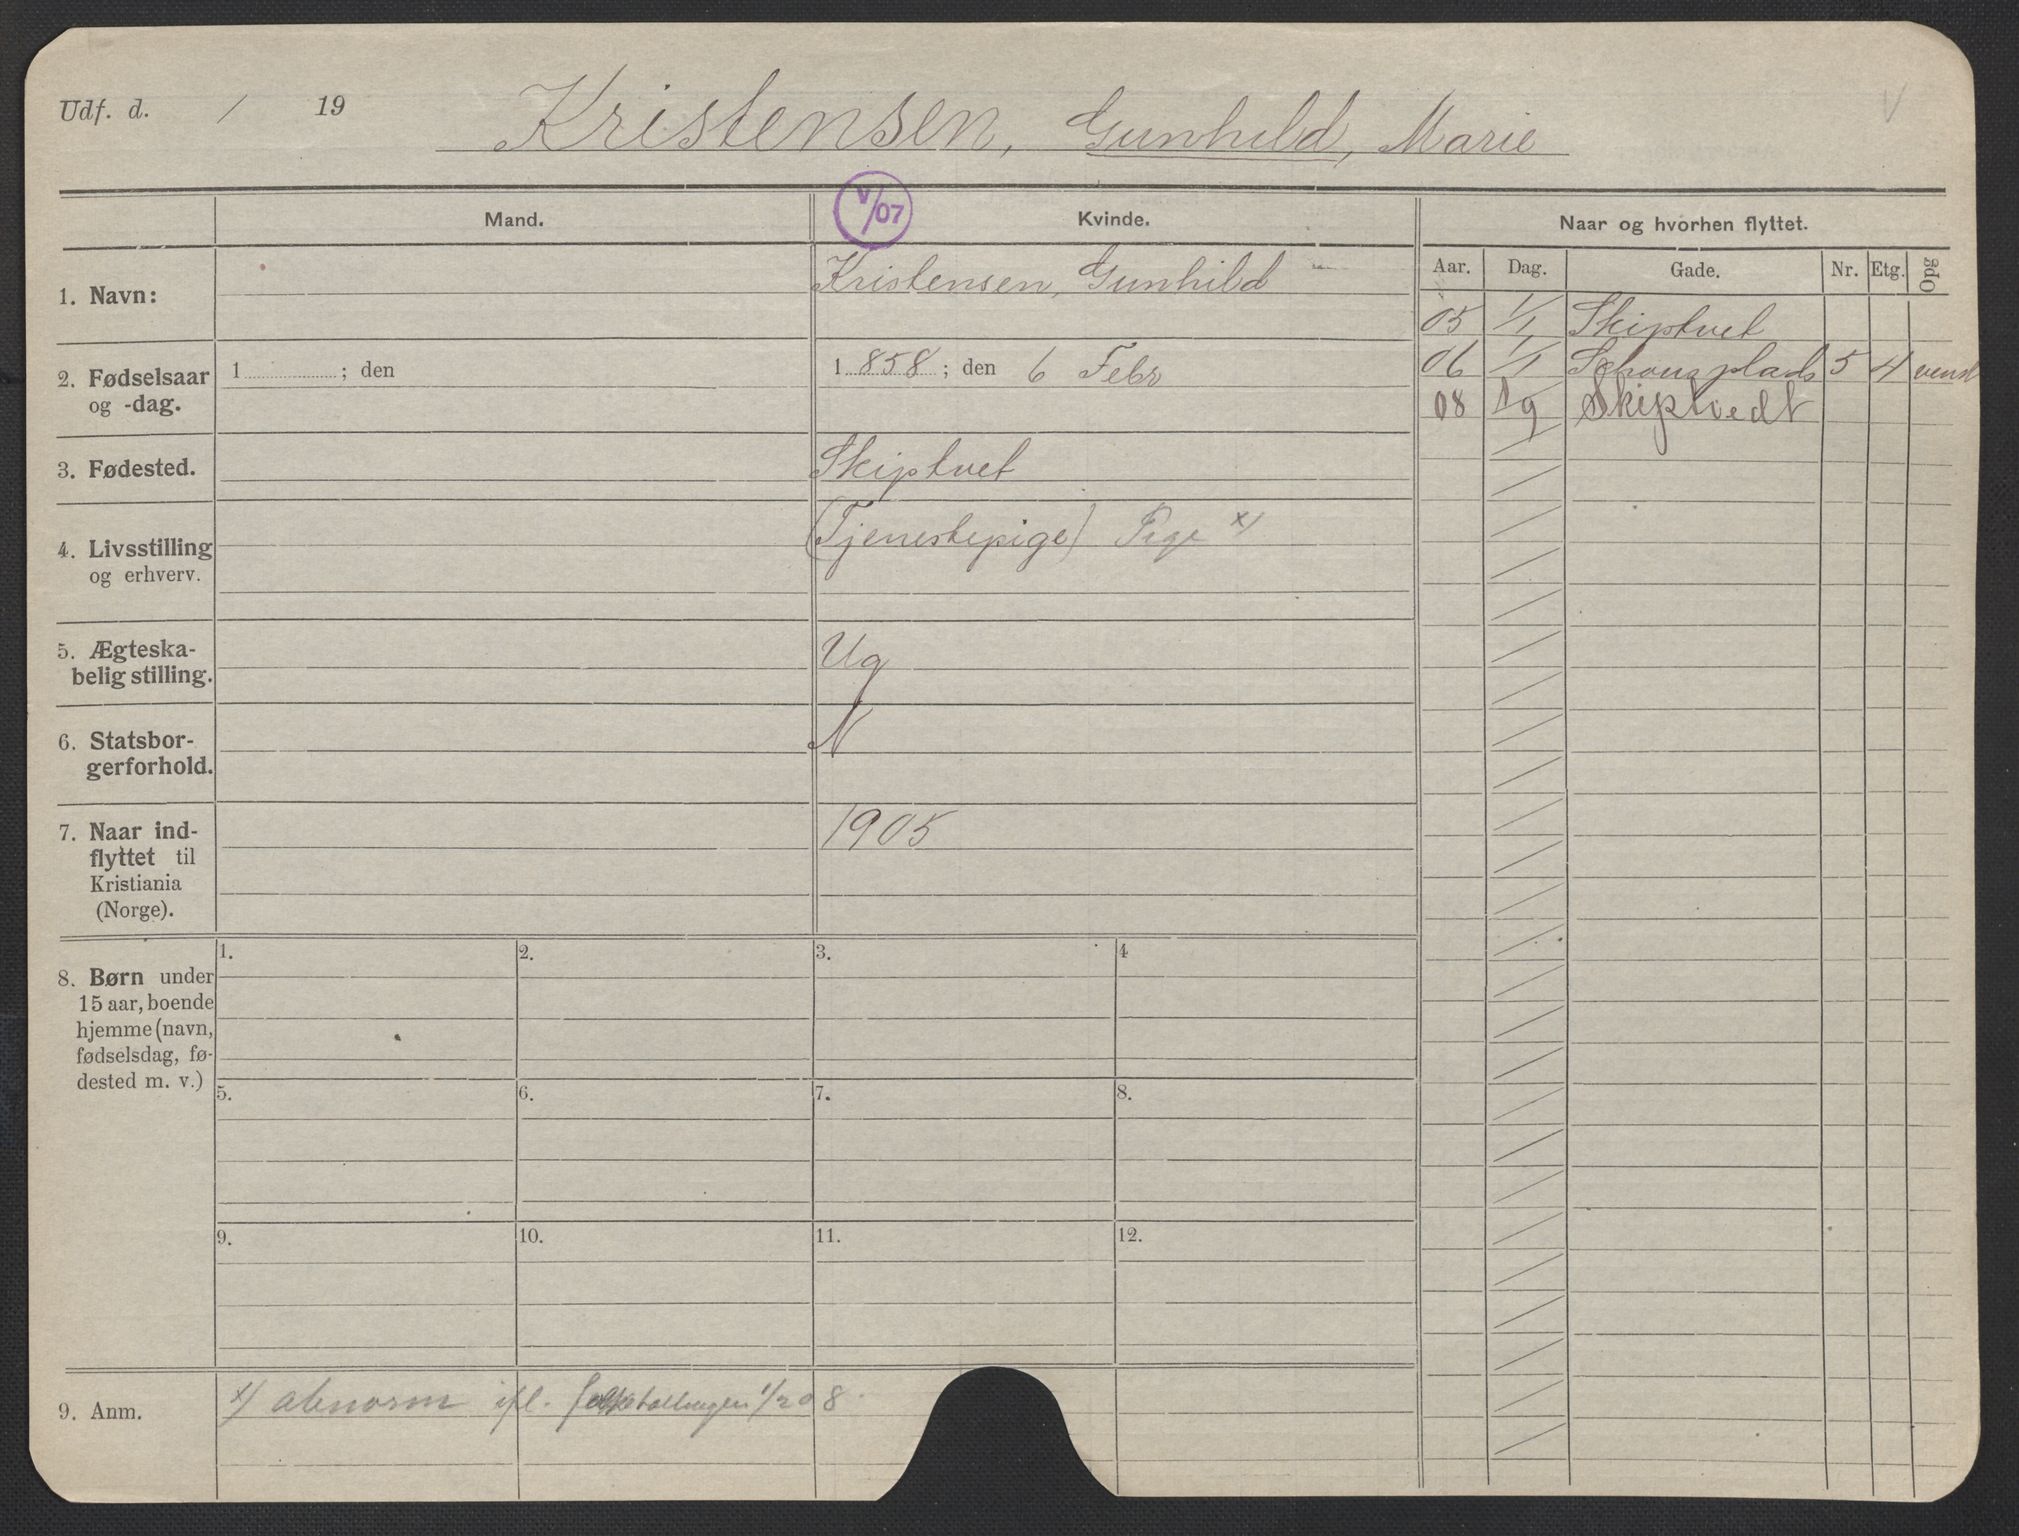 Udf. d. / 19
Kristensen, Gunhild, Marie
V
V/07
Mand.
Kvinde.
Naar og hvorhen flyttet.
Aar. Dag. Gade. Nr. Etg. Opg
1. Navn:
Kristensen, Gunhild
05 1/1 Skiptvet
06 1/1 Schous plads 5 4
08 Skiptvedt
2. Fødselsaar
og -dag.
1 ; den
1 858 ; den 6 Febr
3. Fødested.
Skiptvet
4. Livsstilling
og erhverv.
(Tjenestepige) Pige x)
5. Ægteska-
belig stilling.
Ug
6. Statsbor-
gerforhold.
N
7. Naar ind-
flyttet til
Kristiania
(Norge).
1905
8. Børn under
15 aar, boende
hjemme (navn,
fødselsdag, fø-
dested m. v.)
1. 2. 3. 4
5. 6. 7. 8.
9. 10. 11. 12.
9. Anm.
x) abnorm ifl. folketællingen 1/2 08